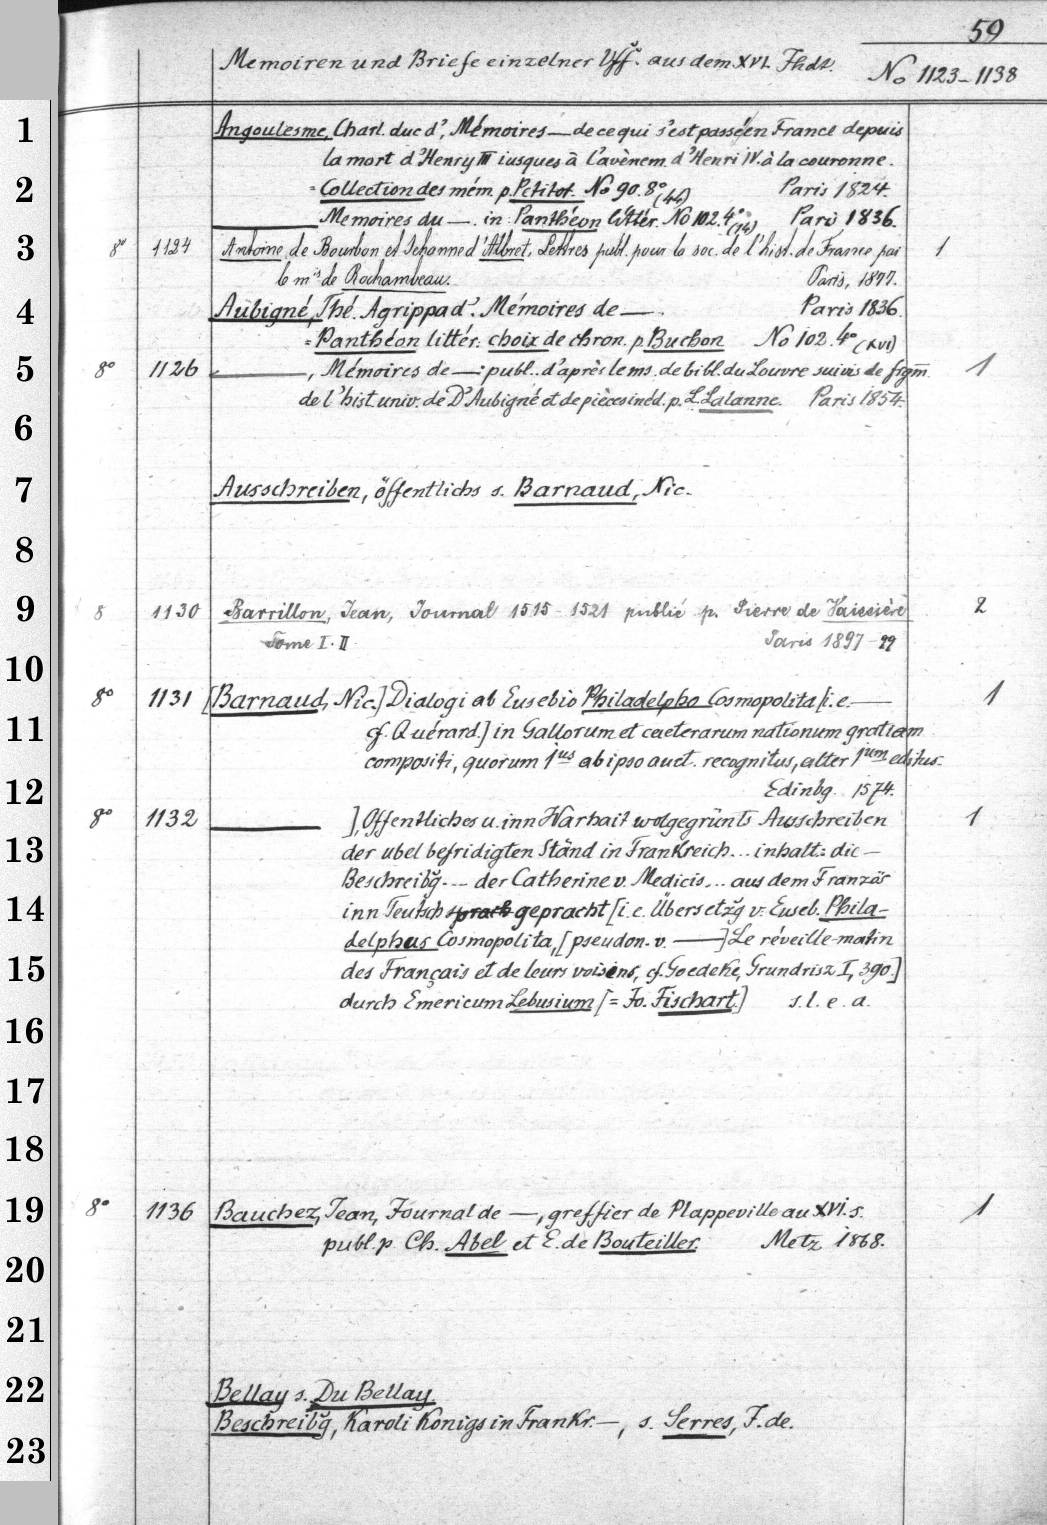 59
Memoiren und Briefe einzelner Vff. aus dem XVI. Jhdt.
No 1123-1138
1
Angoulesme, Charl. duc d', Mémoires — de ce qui s'est passé en France depuis
la mort d'Henry III iusques à l'avènem. d'Henri IV. à la couronne.
2
= Collection des mém. p. Petitot. No 90. 8° (44) Paris 1824.
Memoires du —. in: Panthéon littér. No 102. 4° (14) Paris 1836.
3
8° 1124 Antoine de Bourbon et Jehanne d'Albret, Lettres publ. pour la soc. de l'hist. de France par 1
le mis de Rochambeau. Paris, 1877.
4
Aubigné, Thé. Agrippa d'. Mémoires de —. Paris 1836.
= Panthéon littér. choix de chron. p. Buchon No 102. 4° (XVI)
5
8° 1126 ———, Mémoires de —: publ. d'après le ms. de bibl. du Louvre suivis de frgm. 1
de l'hist. univ. de D'Aubigné et de pièces inéd. p. L. Lalanne. Paris 1854.
6
7
Ausschreiben, öffentlichs s. Barnaud, Nic.
8
9
8 1130 Barrillon, Jean, Journal 1515-1521 publié p. Pierre de Vaissière 2
Tome I. II Paris 1897-99
10
8° 1131 [Barnaud, Nic.] Dialogi ab Eusebio Philadelpho Cosmopolita [i. e. — 1
11
cf. Quérard.] in Gallorum et caeterarum nationum gratiam
compositi, quorum 1us ab ipso auct. recognitus, alter 1um editus.
12
Edinbg. 1574.
8° 1132 ——— ], Offentliches u. inn Warhait wolgegrünts Ausschreiben 1
13
der ubel befridigten Ständ in Frankreich... inhalt: die —
Beschreibg. --- der Catherine v. Medicis... aus dem Französ
14
inn Teutsch sprach gepracht [i. e. Übersetzg v. Euseb. Phila-
delphus Cosmopolita, [pseudon. v. ——] Le réveille-matin
15
des Français et de leurs voisens, cf. Goedeke, Grundrisz I, 390.]
durch Emericum Lebusium [= Jo. Fischart.] s. l. e. a.
16
17
18
19
8° 1136 Bauchez, Jean, Journal de —, greffier de Plappeville au XVI. s. 1
publ. p. Ch. Abel et E. de Bouteiller. Metz 1868.
20
21
22
Bellay s. Du Bellay.
Beschreibg, Karoli Konigs in Frankr. —, s. Serres, J. de.
23